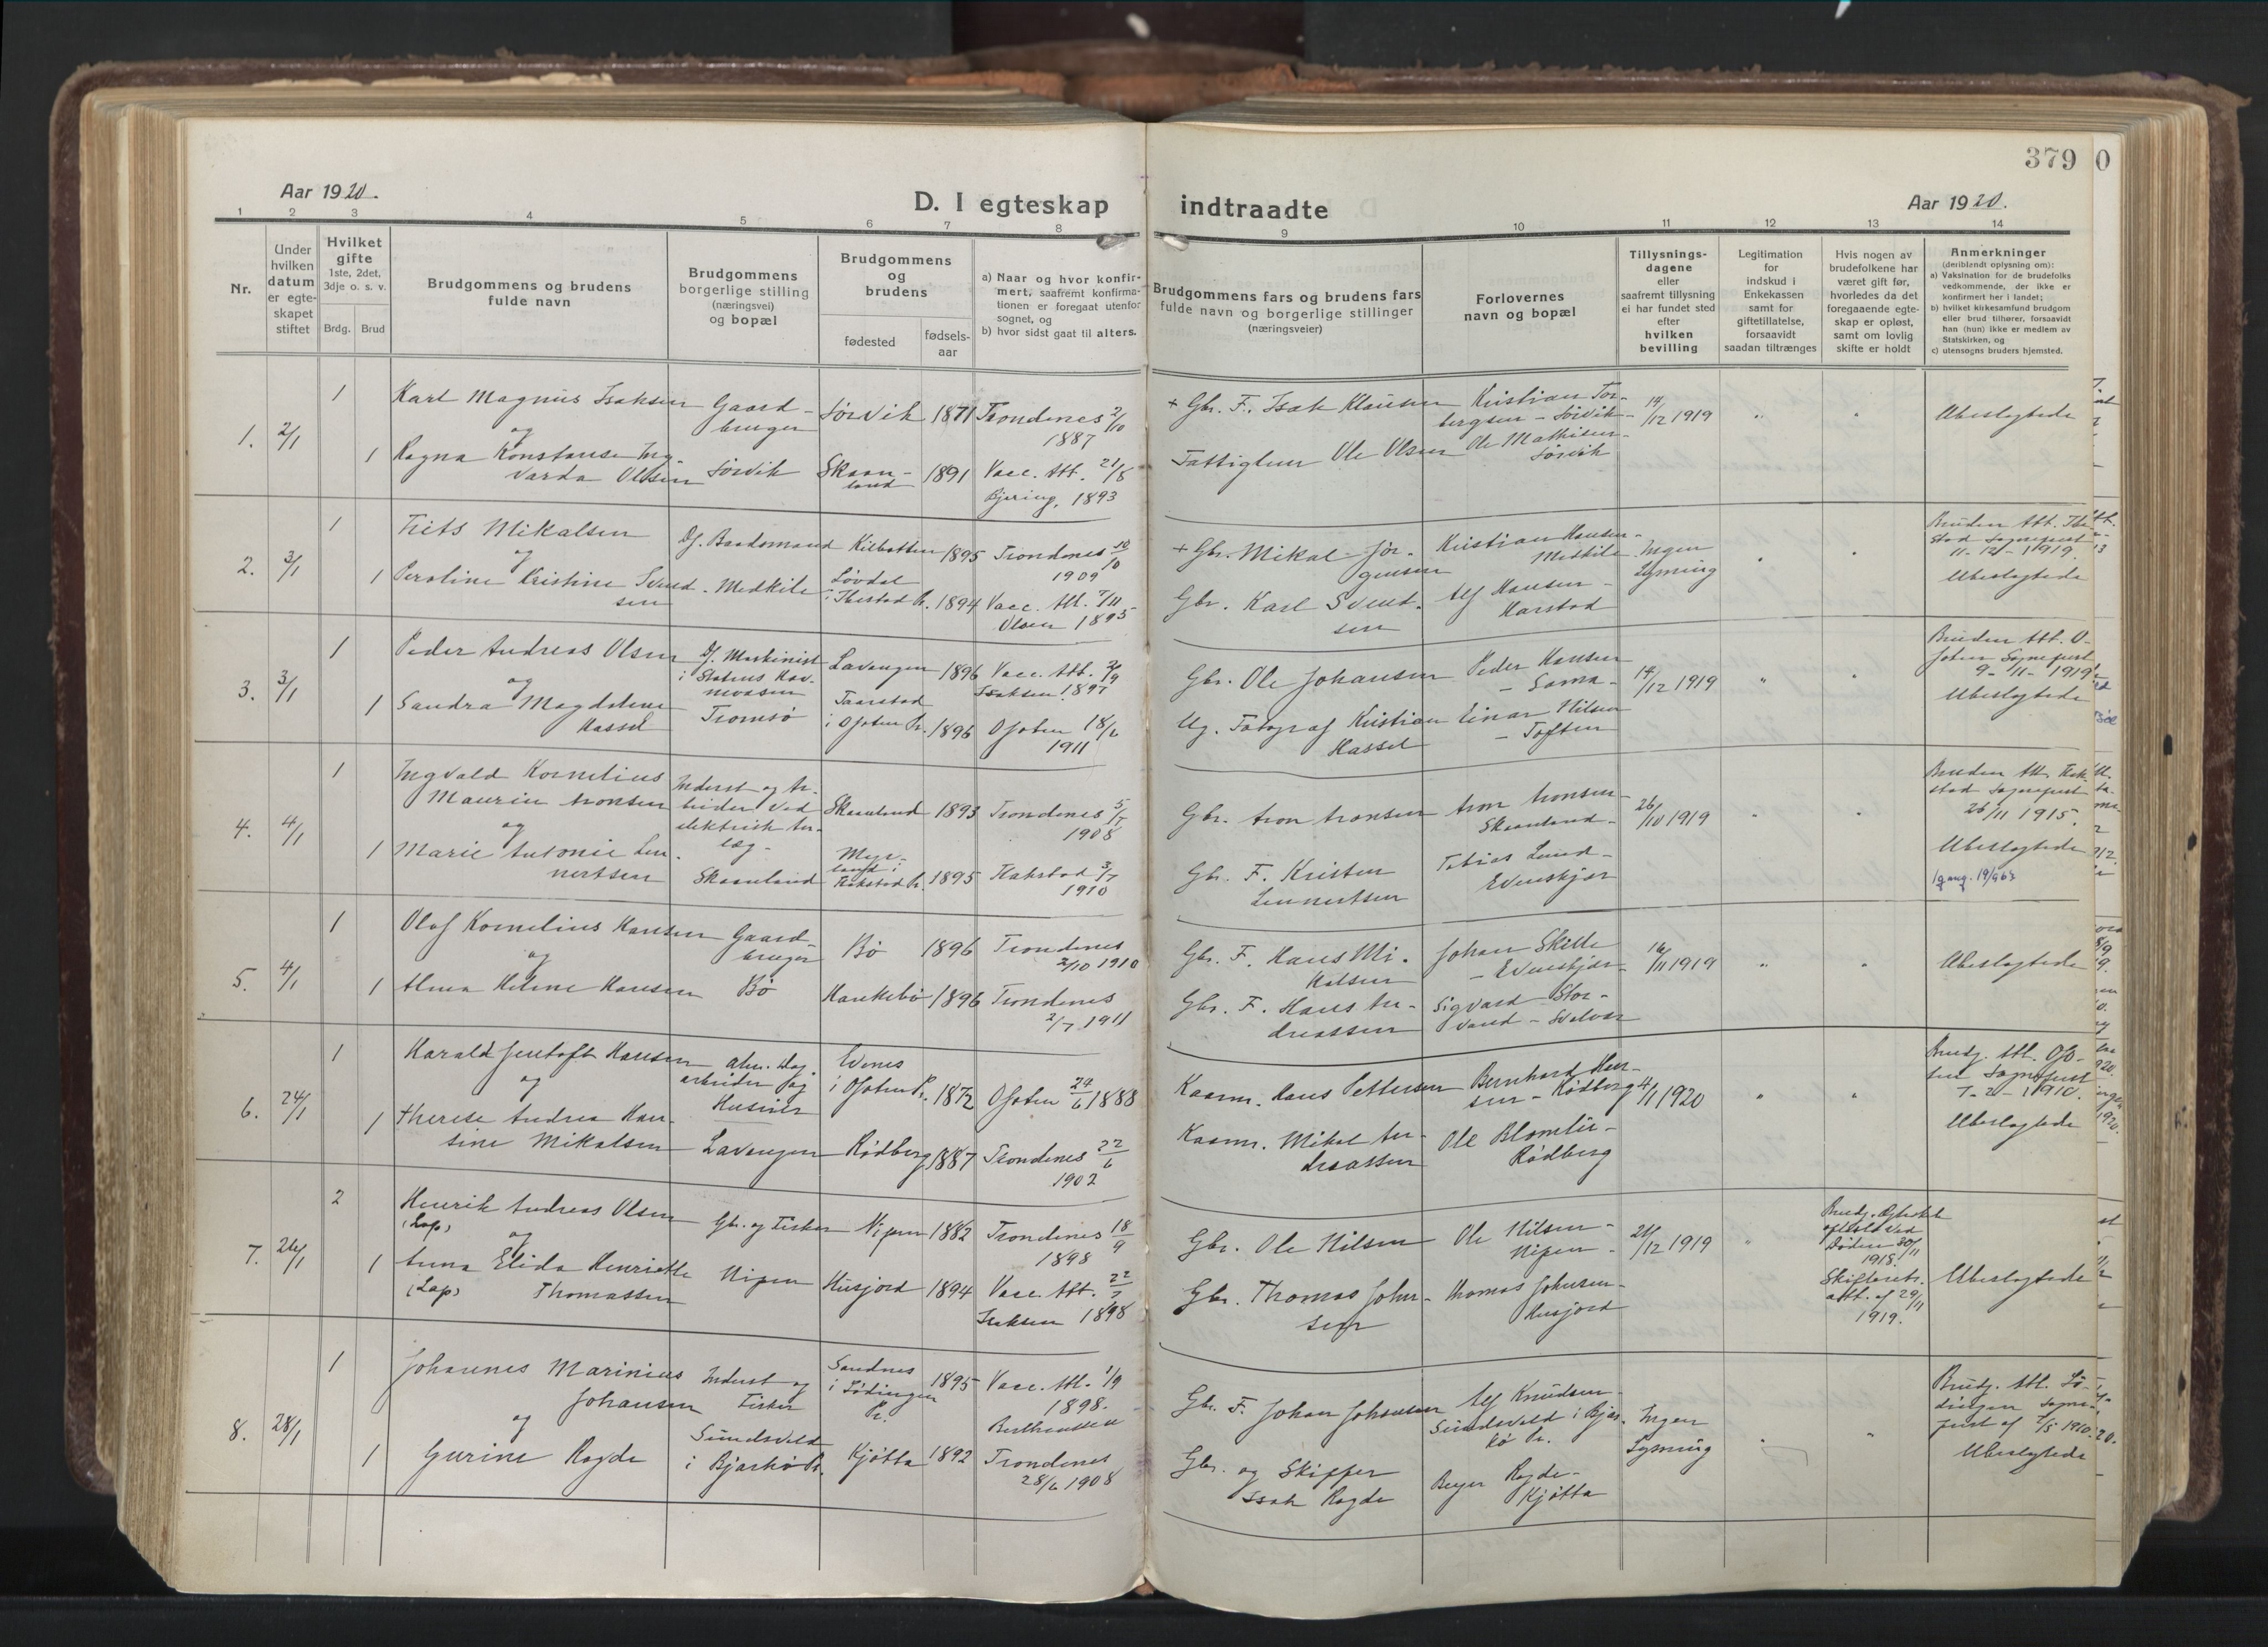 379
0
Aar 1920.
D. I egteskap indtraadte
Aar 1920.
1 2 3 4 5 6 7 8 9 10 11 12 13 14
Nr.
Under
hvilken
datum
er egte-
skapet
stiftet
Hvilket
gifte
1ste, 2det,
3dje o. s. v.
Brdg. Brud
Brudgommens og brudens
fulde navn
Brudgommens
borgerlige stilling
(næringsvei)
og bopæl
Brudgommens
og
brudens
fødested
fødsels-
aar
a) Naar og hvor konfir-
mert, saafremt konfirma-
tionen er foregaat utenfor
sognet, og
b) hvor sidst gaat til alters.
Brudgommens fars og brudens fars
fulde navn og borgerlige stillinger
(næringsveier)
Forlovernes
navn og bopæl
Tillysnings-
dagene
eller
saafremt tillysning
ei har fundet sted
efter
hvilken
bevilling
Legitimation
for
indskud i
Enkekassen
samt for
giftetillatelse,
forsaavidt
saadan tiltrænges
Hvis nogen av
brudefolkene har
været gift før,
hvorledes da det
foregaaende egte-
skap er opløst,
samt om lovlig
skifte er holdt
Anmerkninger
(deriblendt oplysning om):
a) Vaksination for de brudefolks
vedkommende, der ikke er
konfirmert her i landet;
b) hvilket kirkesamfund brudgom
eller brud tilhører, forsaavidt
han (hun) ikke er medlem av
Statskirken, og
c) utensogns bruders hjemsted.
1.
2/1
1
1
Karl Magnus Isaksen
og
Ragna Konstanse Ing
varda Olsen
Gaard-
bruger
Sørvik
Sørvik
Skaan-
land
1871
1891
Trondenes 2/10
1887
Vacc. Att. 21/8
Bjering, 1893
+ Gbr. F. Isak Klausen
Fattiglem Ole Olsen
Kristian Tor-
bergsen - Sørvik
Ole Mathisen-
Sørvik
14/12 1919
Ubeslegtede
2.
3/1
1
1
Frits Mikalsen
og
Peroline Kristine Svend
sen
Df. Baadsmand
Medkile
Kilbotten
Løvdal
i Ibestad Pr.
1895
1894
Trondenes 10/10
1909
Vacc. Att. 7/11
Olsen 1895
+ Gbr. Mikal Jør-
gensen
Gbr. Karl Svend-
sen
Kristian Hansen-
Medkile
Alf Hansen -
Harstad
Ingen
Lysning
Bruden Att. Ibe-
stad Sogneprest
11-12-1919.
Ubeslegtede
3.
3/1
1
1
Peder Andreas Olsen
og
Sandra Magdalene
Hassel
Df. Maskinist
i Statens Hav-
nevæsen
Tromsø
Lavangen
Taarstad
i Ofoten Pr.
1896
1896
Vacc. Att. 2/9
Isaksen 1897
Ofoten 18/6
1911
Gbr. Ole Johansen
Ug. Fotograf Kristian
Hassel
Peder Hansen
- Sama -
Einar Nilsen
- Toften
14/12 1919
Bruden Att. O-
foten Sogneprest
9-11-1919
Ubeslegtede
4.
4/1
1
1
Ingvald Kornelius
Maurin Aronsen
og
Marie Antonie Len-
nertsen
Inderst og Ar-
beider ved
elektrisk An-
læg -
Skaanland
Skaanland
Myr-
land i
Flakstad Pr.
1893
1895
Trondenes 5/7
1908
Flakstad 3/7
1910
Gbr. Aron Aronsen
Gbr. F. Kristen
Lennertsen
Aron Aronsen-
Skaanland-
Tobias Lund -
Evenskjær
26/10 1919
Bruden Att. Flak-
stad Sogneprest
26/11 1915.
Ubeslegtede
5.
4/1
1
1
Olaf Kornelius Hansen
og
Alma Helene Hansen
Gaard-
bruger
Bø
Bø
Haukebø
1896
1896
Trondenes
2/10 1910
Trondenes
2/7 1911
Gbr. F. Hans Mi-
kalsen
Gbr. F. Hans An-
dreassen
Johan Skille
- Evenskjær-
Sigvard Stor-
vand - Svolvær
16/11 1919
Ubeslegtede
6.
24/1
1
1
Harald Jentoft Hansen
og
Therese Andrea Han-
sine Mikalsen
alm. Dag-
arbeider og
Huseier
Lavangen
Evenes
i Ofoten Pr.
Rødberg
1872
1887
Ofoten 24/6 1888
Trondenes 22/6
1902
Kaarm. Hans Pettersen
Kaarm. Mikal An-
dreassen
Bernhard Han-
sen - Rødberg
Ole Blomlie -
Rødberg
4/1 1920
Brudg. Att. Ofo-
ten Sogneprest
7-2-1910.
Ubeslegtede
7.
26/1
2
1
Henrik Andreas Olsen
(Lap)
og
Anna Elida Henriette
(Lap) Thomassen
Gbr. og Fisker
Nipen
Nipen
Husjord
1882
1894
Trondenes 18/9
1898
Vacc. Att. 22/7
Isaksen 1898
Gbr. Ole Nilsen
Gbr. Thomas John-
sen
Ole Nilsen -
Nipen
Thomas Johnsen-
Husjord
21/12 1919
Brudg. Egteskab
opløst ved
Døden 30/11
1918.
Skifterets-
att. af 29/11
1919.
Ubeslegtede
8.
28/1
1
1
Johannes Marinius
Johansen
og
Gurine Ragde
Inderst og
Fisker
Sundsvold
i Bjarkø Pr.
Sandnes
i Lødingen
Pr.
Kjøtta
1895
1892
Vacc. Att. 1/9
1898.
Bertheussen
Trondenes
28/6 1908
Gbr. F. Johan Johansen
Gbr. og Skipper
Isak Ragde
Alf Knudsen
Sundsvold i Bjar-
kø Pr.
Beyer Ragde-
Kjøtta
Ingen
Lysning
Brudg. Att. Lø-
dingen Sogne-
prest af 7/5 1910.
Ubeslegtede